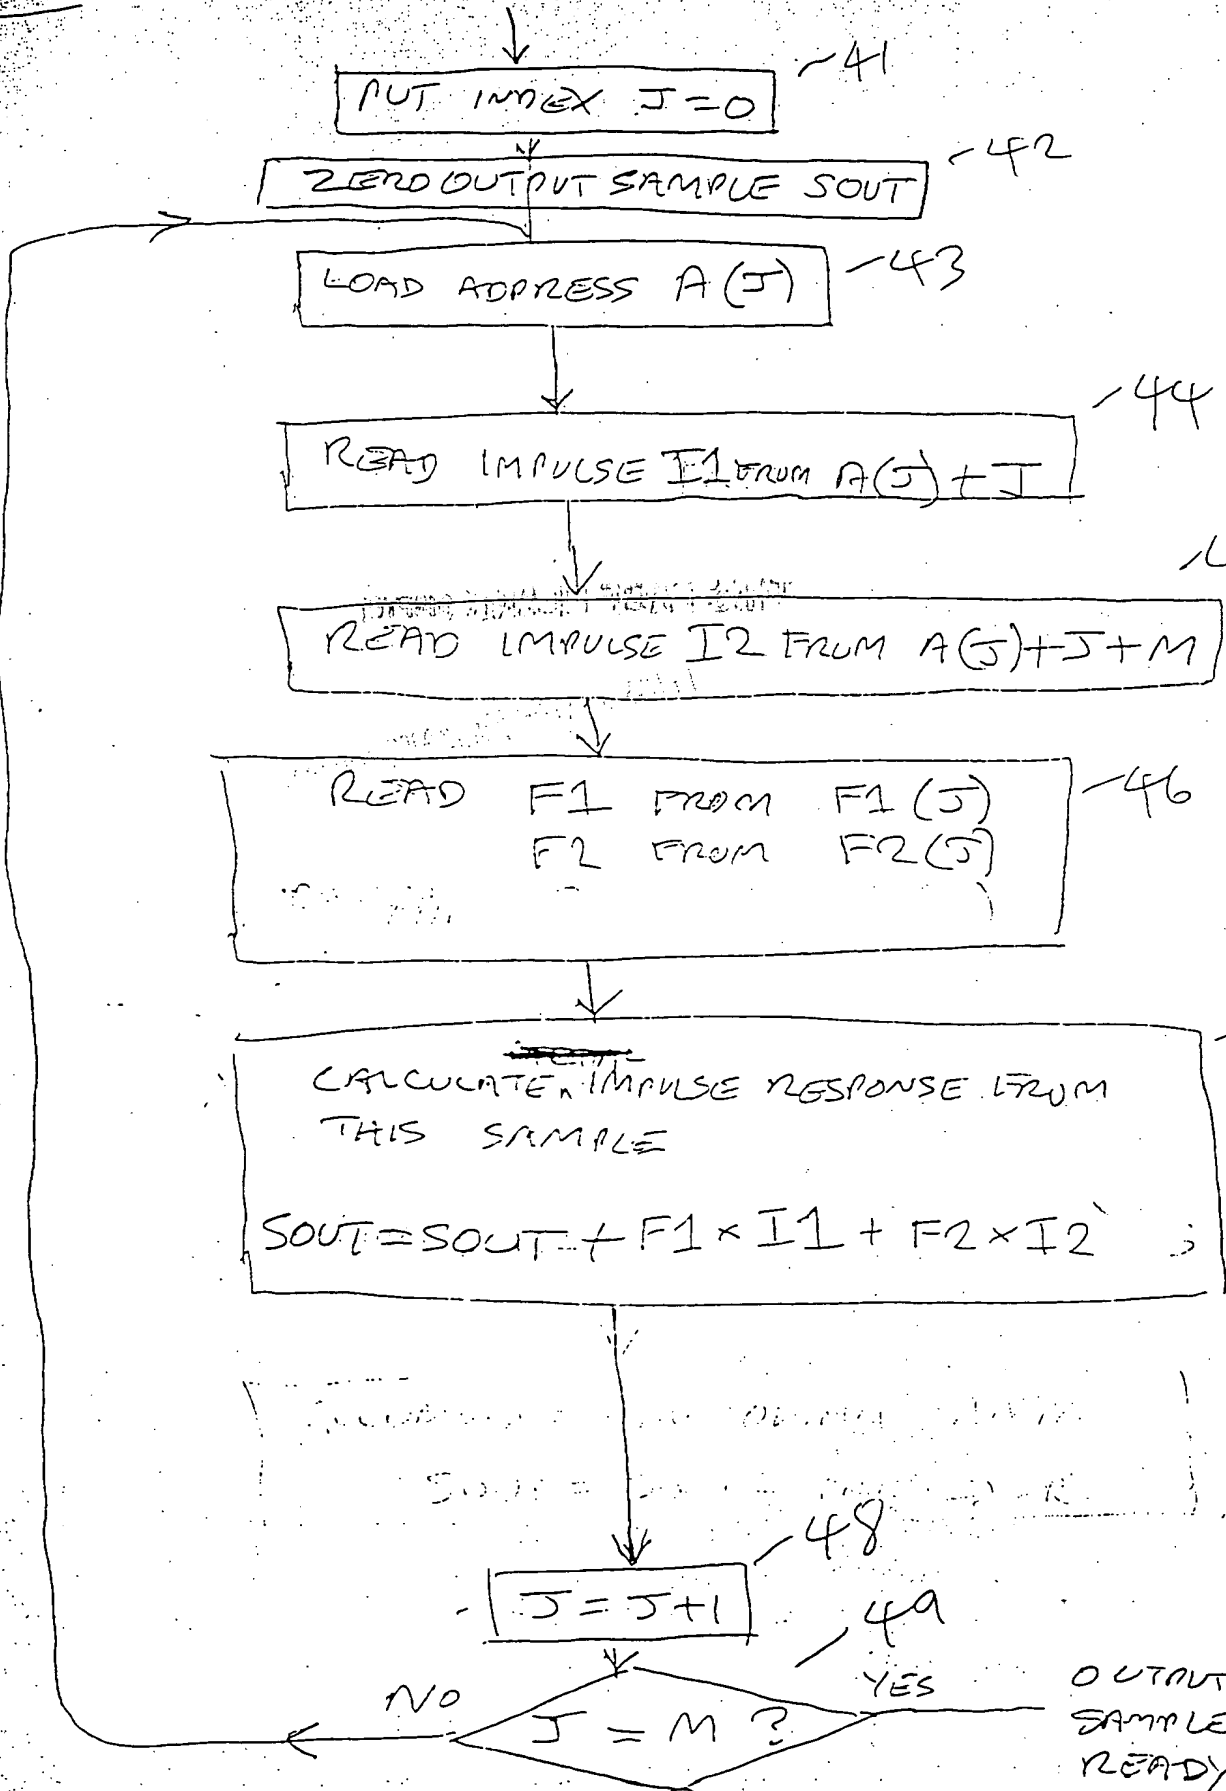 PUT INDEX J=0
41
ZERO OUTPUT SAMPLE SOUT
42
LOAD ADDRESS A(J)
43
44
READ IMPULSE I1 FROM A(J)+J
READ IMPULSE I2 FROM A(J)+J+M
READ F1 FROM F1(J)
46
F2 FROM F2(J)
CALCULATE IMPULSE RESPONSE FROM
THIS SAMPLE
SOUT=SOUT+F1×I1+F2×I2 ;
48
J=J+1
49
NO
J=M?
YES
OUTPUT
SAMPLE
READY